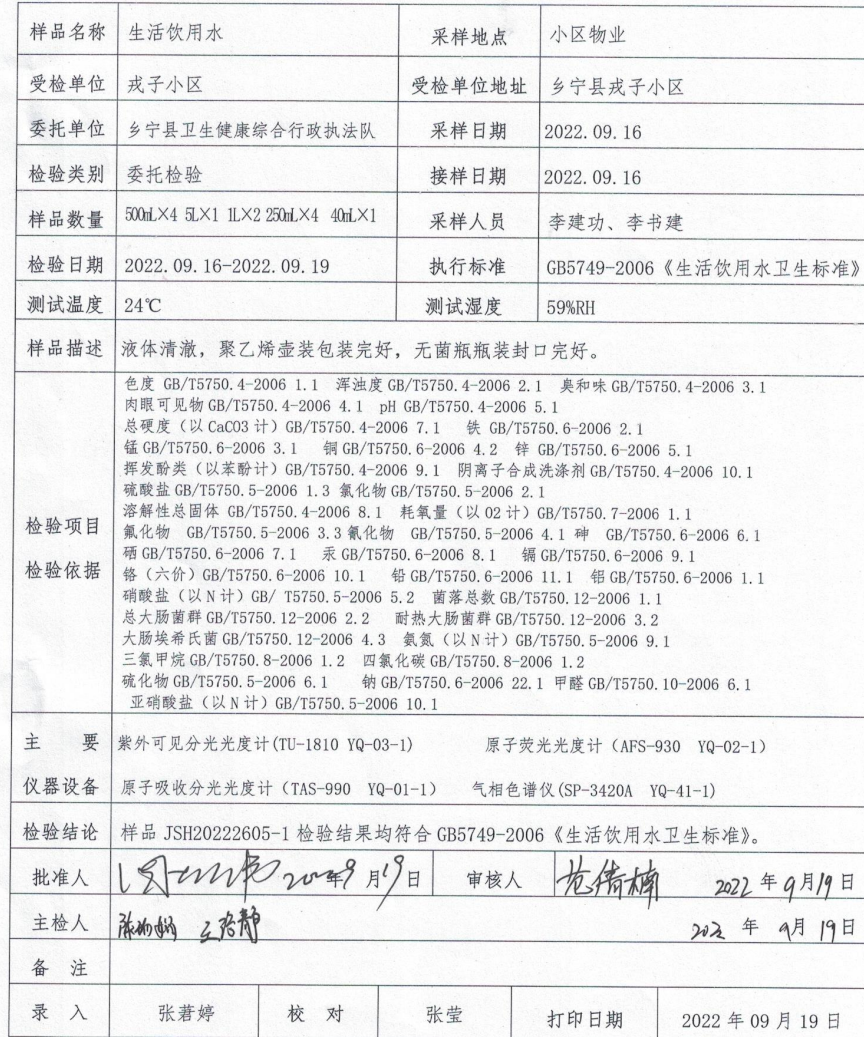 样品名称 生活饮用水 采样地点 小区物业
受检单位 戎子小区 受检单位地址 乡宁县戎子小区
委托单位 乡宁县卫生健康综合行政执法队 采样日期 2022.09.16
检验类别 委托检验 接样日期 2022.09.16
样品数量 500mL×4 5L×1 1L×2 250mL×4 40mL×1 采样人员 李建功、李书建
检验日期 2022.09.16-2022.09.19 执行标准 GB5749-2006《生活饮用水卫生标准》
测试温度 24℃ 测试湿度 59%RH
样品描述 液体清澈，聚乙烯壶装包装完好，无菌瓶瓶装封口完好。
检验项目
检验依据
色度 GB/T5750.4-2006 1.1 浑浊度 GB/T5750.4-2006 2.1 臭和味 GB/T5750.4-2006 3.1
肉眼可见物 GB/T5750.4-2006 4.1 pH GB/T5750.4-2006 5.1
总硬度（以 CaCO3 计）GB/T5750.4-2006 7.1 铁 GB/T5750.6-2006 2.1
锰 GB/T5750.6-2006 3.1 铜 GB/T5750.6-2006 4.2 锌 GB/T5750.6-2006 5.1
挥发酚类（以苯酚计）GB/T5750.4-2006 9.1 阴离子合成洗涤剂 GB/T5750.4-2006 10.1
硫酸盐 GB/T5750.5-2006 1.3 氯化物 GB/T5750.5-2006 2.1
溶解性总固体 GB/T5750.4-2006 8.1 耗氧量（以 O2 计）GB/T5750.7-2006 1.1
氟化物 GB/T5750.5-2006 3.3 氰化物 GB/T5750.5-2006 4.1 砷 GB/T5750.6-2006 6.1
硒 GB/T5750.6-2006 7.1 汞 GB/T5750.6-2006 8.1 镉 GB/T5750.6-2006 9.1
铬（六价）GB/T5750.6-2006 10.1 铅 GB/T5750.6-2006 11.1 铝 GB/T5750.6-2006 1.1
硝酸盐（以 N 计）GB/ T5750.5-2006 5.2 菌落总数 GB/T5750.12-2006 1.1
总大肠菌群 GB/T5750.12-2006 2.2 耐热大肠菌群 GB/T5750.12-2006 3.2
大肠埃希氏菌 GB/T5750.12-2006 4.3 氨氮（以 N 计）GB/T5750.5-2006 9.1
三氯甲烷 GB/T5750.8-2006 1.2 四氯化碳 GB/T5750.8-2006 1.2
硫化物 GB/T5750.5-2006 6.1 钠 GB/T5750.6-2006 22.1 甲醛 GB/T5750.10-2006 6.1
亚硝酸盐（以 N 计）GB/T5750.5-2006 10.1
主 要 紫外可见分光光度计(TU-1810 YQ-03-1) 原子荧光光度计（AFS-930 YQ-02-1）
仪器设备 原子吸收分光光度计（TAS-990 YQ-01-1） 气相色谱仪(SP-3420A YQ-41-1)
检验结论 样品 JSH20222605-1 检验结果均符合 GB5749-2006《生活饮用水卫生标准》。
批准人 年9月19日 审核人 范倩楠 2022年9月19日
主检人 年9月19日
备 注
录 入 张若婷 校 对 张莹 打印日期 2022年09月19日